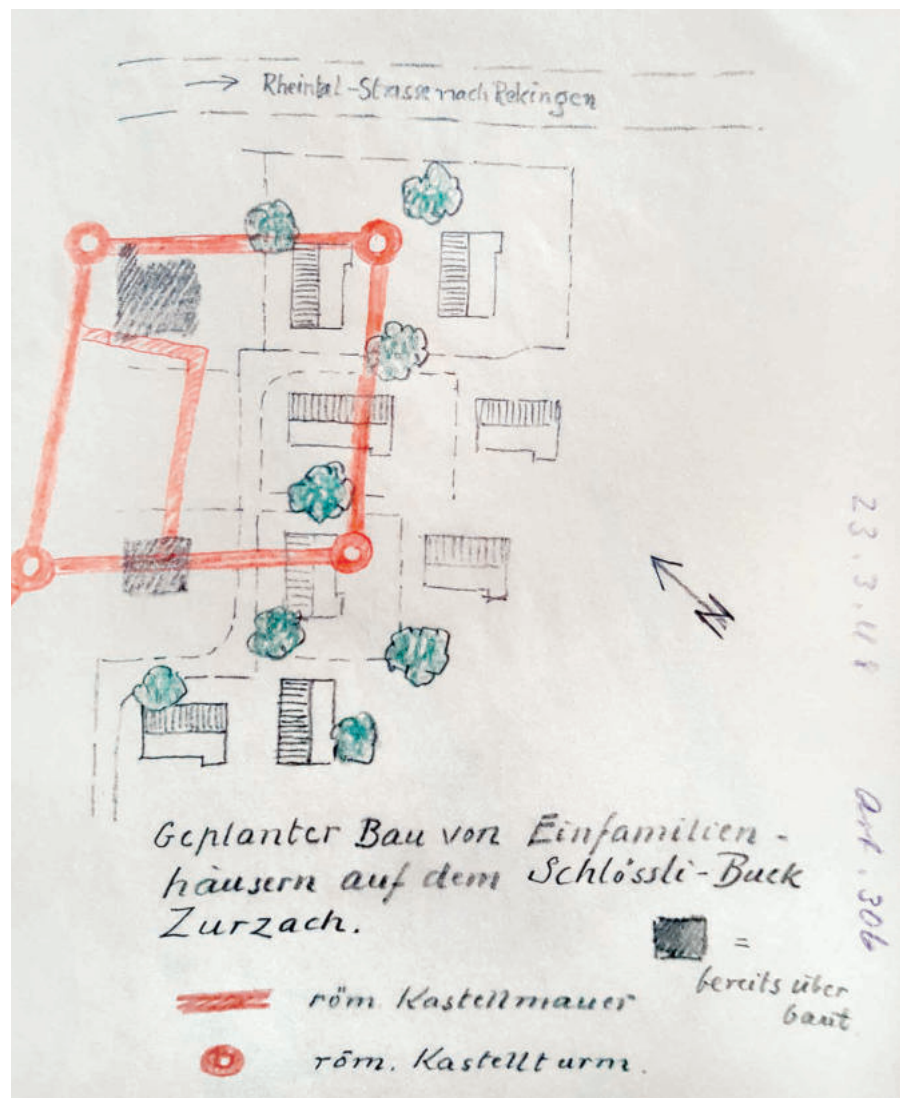 → Rheintal-Strasse nach Rekingen
N
Geplanter Bau von Einfamilien-
häusern auf dem Schlössli-Buck
Zurzach.
= bereits über
baut
röm. Kastellmauer
röm. Kastellturm.
23.3.48
Art. 306